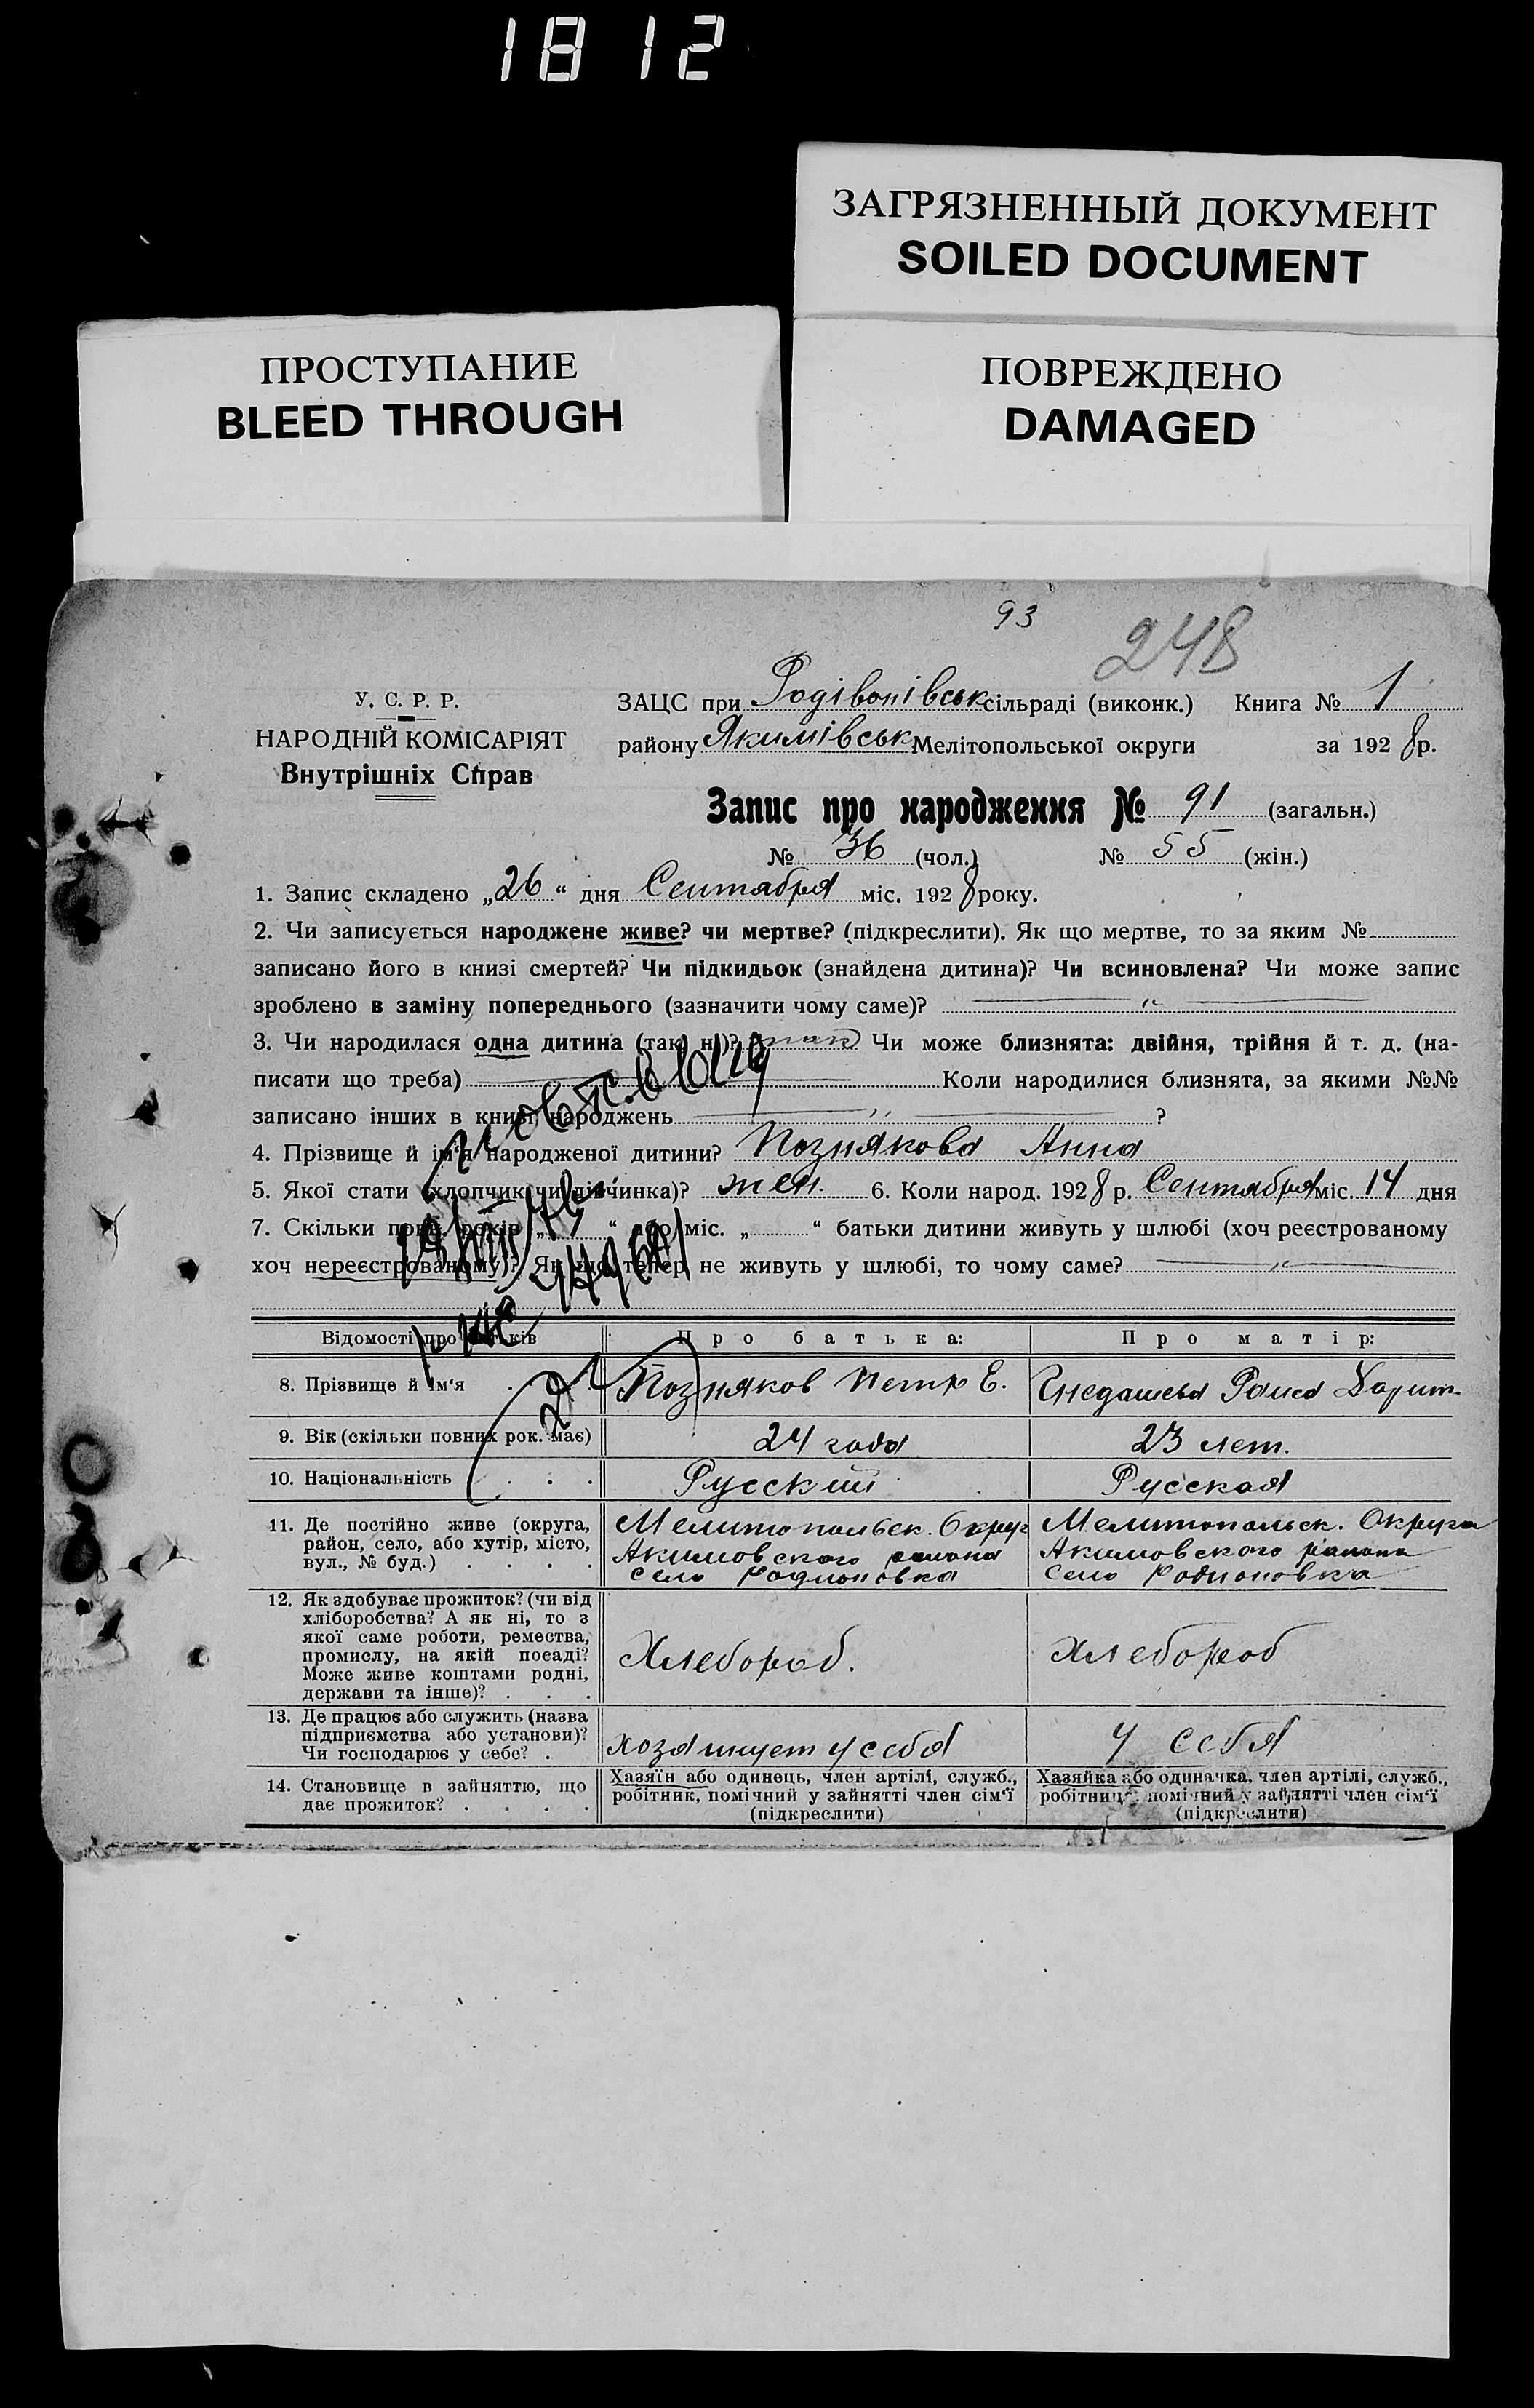 1812
ЗАГРЯЗНЕННЫЙ ДОКУМЕНТ
SOILED DOCUMENT
ПРОСТУПАНИЕ
BLEED THROUGH
ПОВРЕЖДЕНО
DAMAGED
93
248
У. С. Р. Р.
НАРОДНІЙ КОМІСАРІЯТ
Внутрішніх Справ
ЗАЦС при Родівонівськ сільраді (виконк.) Книга № 1
району Якимівськ Мелітопольської округи за 1928 р.
Запис про народження № 91 (загальн.)
№ 36 (чол.) № 55 (жін.)
1. Запис складено „26“ дня Сентября міс. 1928 року.
2. Чи записується народжене живе? чи мертве? (підкреслити). Як що мертве, то за яким №
записано його в книзі смертей? Чи підкидьок (знайдена дитина)? Чи всиновлена? Чи може запис
зроблено в заміну попереднього (зазначити чому саме)? — „ —
3. Чи народилася одна дитина (так, ні)? так Чи може близнята: двійня, трійня й т. д. (на-
писати що треба) — Коли народилися близнята, за якими №№
записано інших в книзі народжень — „ — ?
4. Прізвище й ім'я народженої дитини? Познякова Анна
5. Якої стати (хлопчик чи дівчинка)? жен. 6. Коли народ. 1928 р. Сентября міс. 14 дня
7. Скільки повн. років „ “ або міс. „ “ батьки дитини живуть у шлюбі (хоч реєстрованому
хоч нереєстрованому)? Як що тепер не живуть у шлюбі, то чому саме? — „ —
Відомості про батьків Про батька: Про матір:
8. Прізвище й ім'я Позняков Петр Е. Раиса
9. Вік (скільки повних рок. має) 24 года 23 лет.
10. Національність Русский Русская
11. Де постійно живе (округа,
район, село, або хутір, місто,
вул., № буд.)
Мелитопольск. Округ
Акимовского района
село Родионовка
Мелитопольск. Округа
Акимовского района
село Родионовка
12. Як здобуває прожиток? (чи від
хліборобства? А як ні, то з
якої саме роботи, ремества,
промислу, на якій посаді?
Може живе коштами родні,
держави та інше)?
Хлебороб.
Хлебороб
13. Де працює або служить (назва
підприємства або установи)?
Чи господарює у себе?
хозяинует у себя
у себя
14. Становище в зайняттю, що
дає прожиток?
Хазяїн або одинець, член артілі, служб.,
робітник, помічний у зайнятті член сім'ї
(підкреслити)
Хазяйка або одиначка, член артілі, служб.,
робітниця, помічний у зайнятті член сім'ї
(підкреслити)